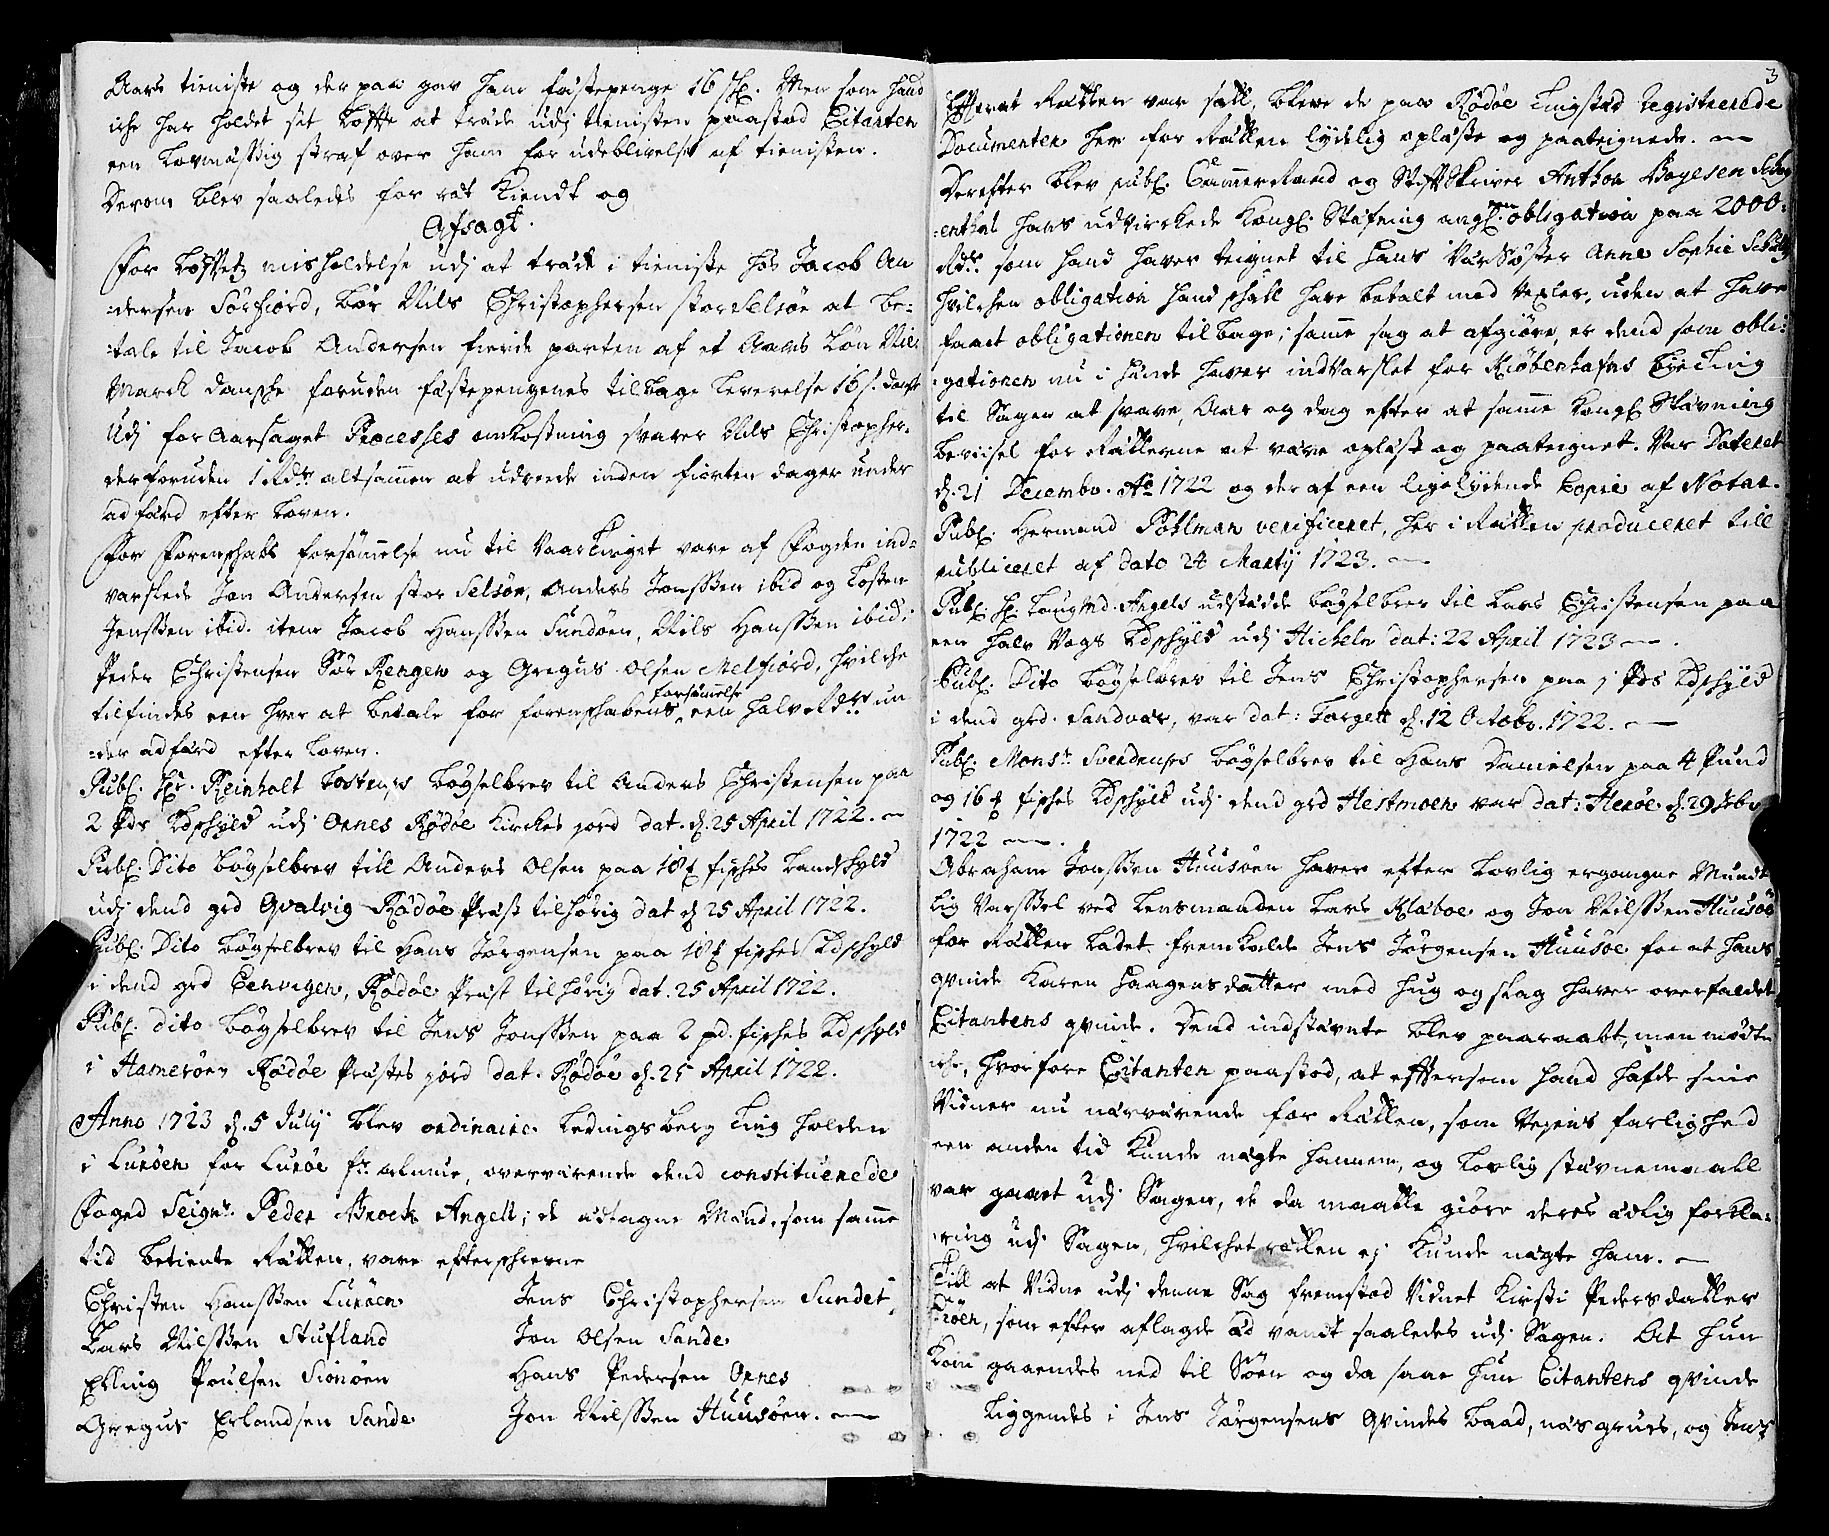 Aars tieniste og der paa gav ham fæstepenge 16 sk. Men som hand
iche har holdet sit Løffte at træde udj tienisten paastod Citanten
een Lovmæssig straf over ham for udeblivelse af tienisten.
Derom blev saaledes for ræt Kiendt og
Afsagt.
For Løfftets misholdelse udj at træde i tieniste hos Jacob An
-dersen Sørfiord, bør Nils Christophersen stor Selsøe at be-
-tale til Jacob Andersen fierde parten af et Aars Løn
March danske foruden fæstepengenes tilbage leverelse 16 s. danske
Udj foraarsaget Processes omkostning svarer Nils Christopher-
derforuden 1 Rdr altsammen at udreede inden fiorten dager under
adfærd efter Loven.
For Forenskabs forsømmelse nu til Vaartinget vare af Fogden ind-
varslede Jon Andersen stor Selsøen, Anders Jonssen ibid og Tosten
Jenssen ibid. item Jacob Hanssen Sundøen, Nils Hanssen ibid:
Peder Christensen Sør Rengen og Gregus Olsen Melfiord, hvilche
tilfindes een hver at betale for forenskabens forsømmelse een halv Rdr un
-der adfærd efter Loven.
Publ. Hr. Reinholt Tostrups bøyselbrev til Anders Christensen paa
2 Pds Ldskyld udj Ornes Rødøe Kirckes jord dat. d. 25 April 1722. -
Publ. Dito bøyselbrev till Anders Olsen paa 18 # fisches Landskyld
udj dend grd Qvalvig Rødøe Præst tilhørig dat d. 25 April 1722.
Publ. Dito bøyselbrev til Hans Jørgensen paa 18 # fisches Ldskyld
i dend grd Cervigen, Rødøe Præst tilhørig dat. 25 April 1722.
Publ. dito bøyselbrev til Jens Jonssen paa 2 pd. fisches Ldskyld
i Hamerøen Rødøe Præstes jord dat. Rødøe d. 25 April 1722.
Anno 1723 d. 5 Julij blev ordinaire Ledingsberg Ting holden
i Lurøen for Lurøe fr. almue, overværende dend constituerede
Foged Seignr. Peder Broch Angell; de edtagne Mænd, som samme
tid betiente Rætten, vare efterskrevne
Christen Hanssen Lurøen Jens Christophersen Sundet,
Lars Nilssen Stufland Jon Olsen Sande
Elling Poulsen Sionøen Hans Pedersen Ornes
Gregus Erlandsen Sande Jon Nilssen Huusøen. -
3
Efter at Rætten var satt, bleve de paa Rødøe Tingstæd Registrerede
Documenter her for Rætten lydelig oplæste og paateignede. -
Derefter blev publ. Cammer Raad og Stiftskriver Anthon Boyesen
hans udvirckede Kongl. Stefning angl. en obligation paa 2000
Rdr. som hand haver teignet til hans Værsøster Anne Sophie
hvilchen obligation hand skall have betalt med vexler, uden at have
faaet obligationen tilbage; samme sag at afgiøre, er dend som obli-
-gationen nu i hænde haver indvarslet for Kiøbenhafns Byeting
til Sagen at svare, Aar og dag efter at samme Kongl. Stævning
beviisel for Rætterne at være oplæst og paateignet. Var Dateret
d. 21 Decembr. Ao 1722 og der af een ligelydende Copie af Notar.
Publ. Hermand Pohlman verificeret, her i Rætten produceret till
publiceret af dato 24 Martij 1723. -
Publ. Hr. Angels udstædde bøyselbrev til Lars Christensen paa
een halv Vogs Ldskyld udj Hickeln dat: 22 April 1723 -
Publ. Dito bøyselbrev til Jens Christophersen paa 1 Pds Ldskyld
i dend grd. Sandvær, var dat: Forgett d. 12 Octobr. 1722. -
Publ. Monsr. Svendrups bøyselbrev til Hans Danielsen paa 4 Pund
og 16 # fisches Ldskyld udj dend grd Hestmoen var dat: Herøe d. 29
1722 -
Abraham Jonssen Huusøen haver efter Lovlig ergangne Mundt
lig Varssel ved Lensmanden Lars Klaboe og Jon Nilssen Huusøe
for Rætten ladet fremkalde Jens Jørgensen Huusøe for at hans
qvinde Karen Haagensdatter med hug og slag haver overfaldet
Citantens qvinde. Dend indstævnte blev paaraabt, men mødte
iche, hvorfore Citanten paastod, at efftersom hand hafde sine
Vidner nu nærværende for Rætten, som Vejens farlighed
een anden tid Kunde nægte hannem, og Lovlig stævnemaall
var gaaet udj Sagen, de da maatte giøre deres edlig forkla-
-ring udj Sagen, hvilchet rætten ej Kunde nægte ham. -
Till at Vidne udj denne Sag fremstod Vidnet Kirsti Pedersdatter
som efter aflagde Ed vandt saaledes udj Sagen: At hun
kom gaaendes ned til Søen og da saae hun Citantens qvinde
liggendes i Jens Jørgensens qvindes baad, næsgrues, og Jens